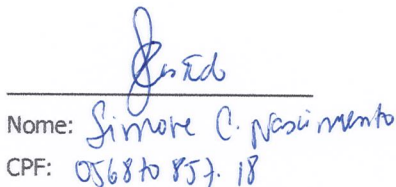 Nome: Simone C. Nascimento
CPF: 056870857.18